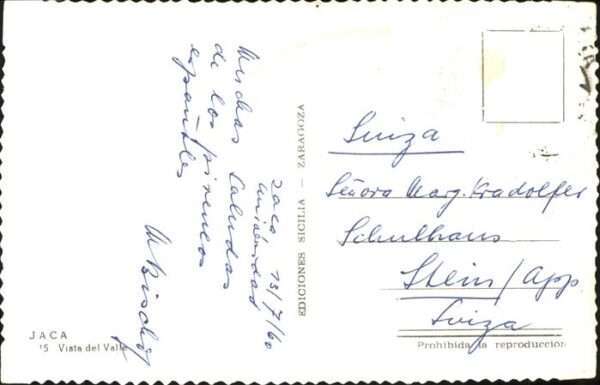 Jaca 13/7/60
Muchas Saludas
de los pireneos
españoles
M Bischof
EDICIONES SICILIA — ZARAGOZA
Suiza
Señora Marg. Kradolfer
Schulhaus
Stein/App
Suiza
JACA
15 Vista del Valle
Prohibida la reproducción